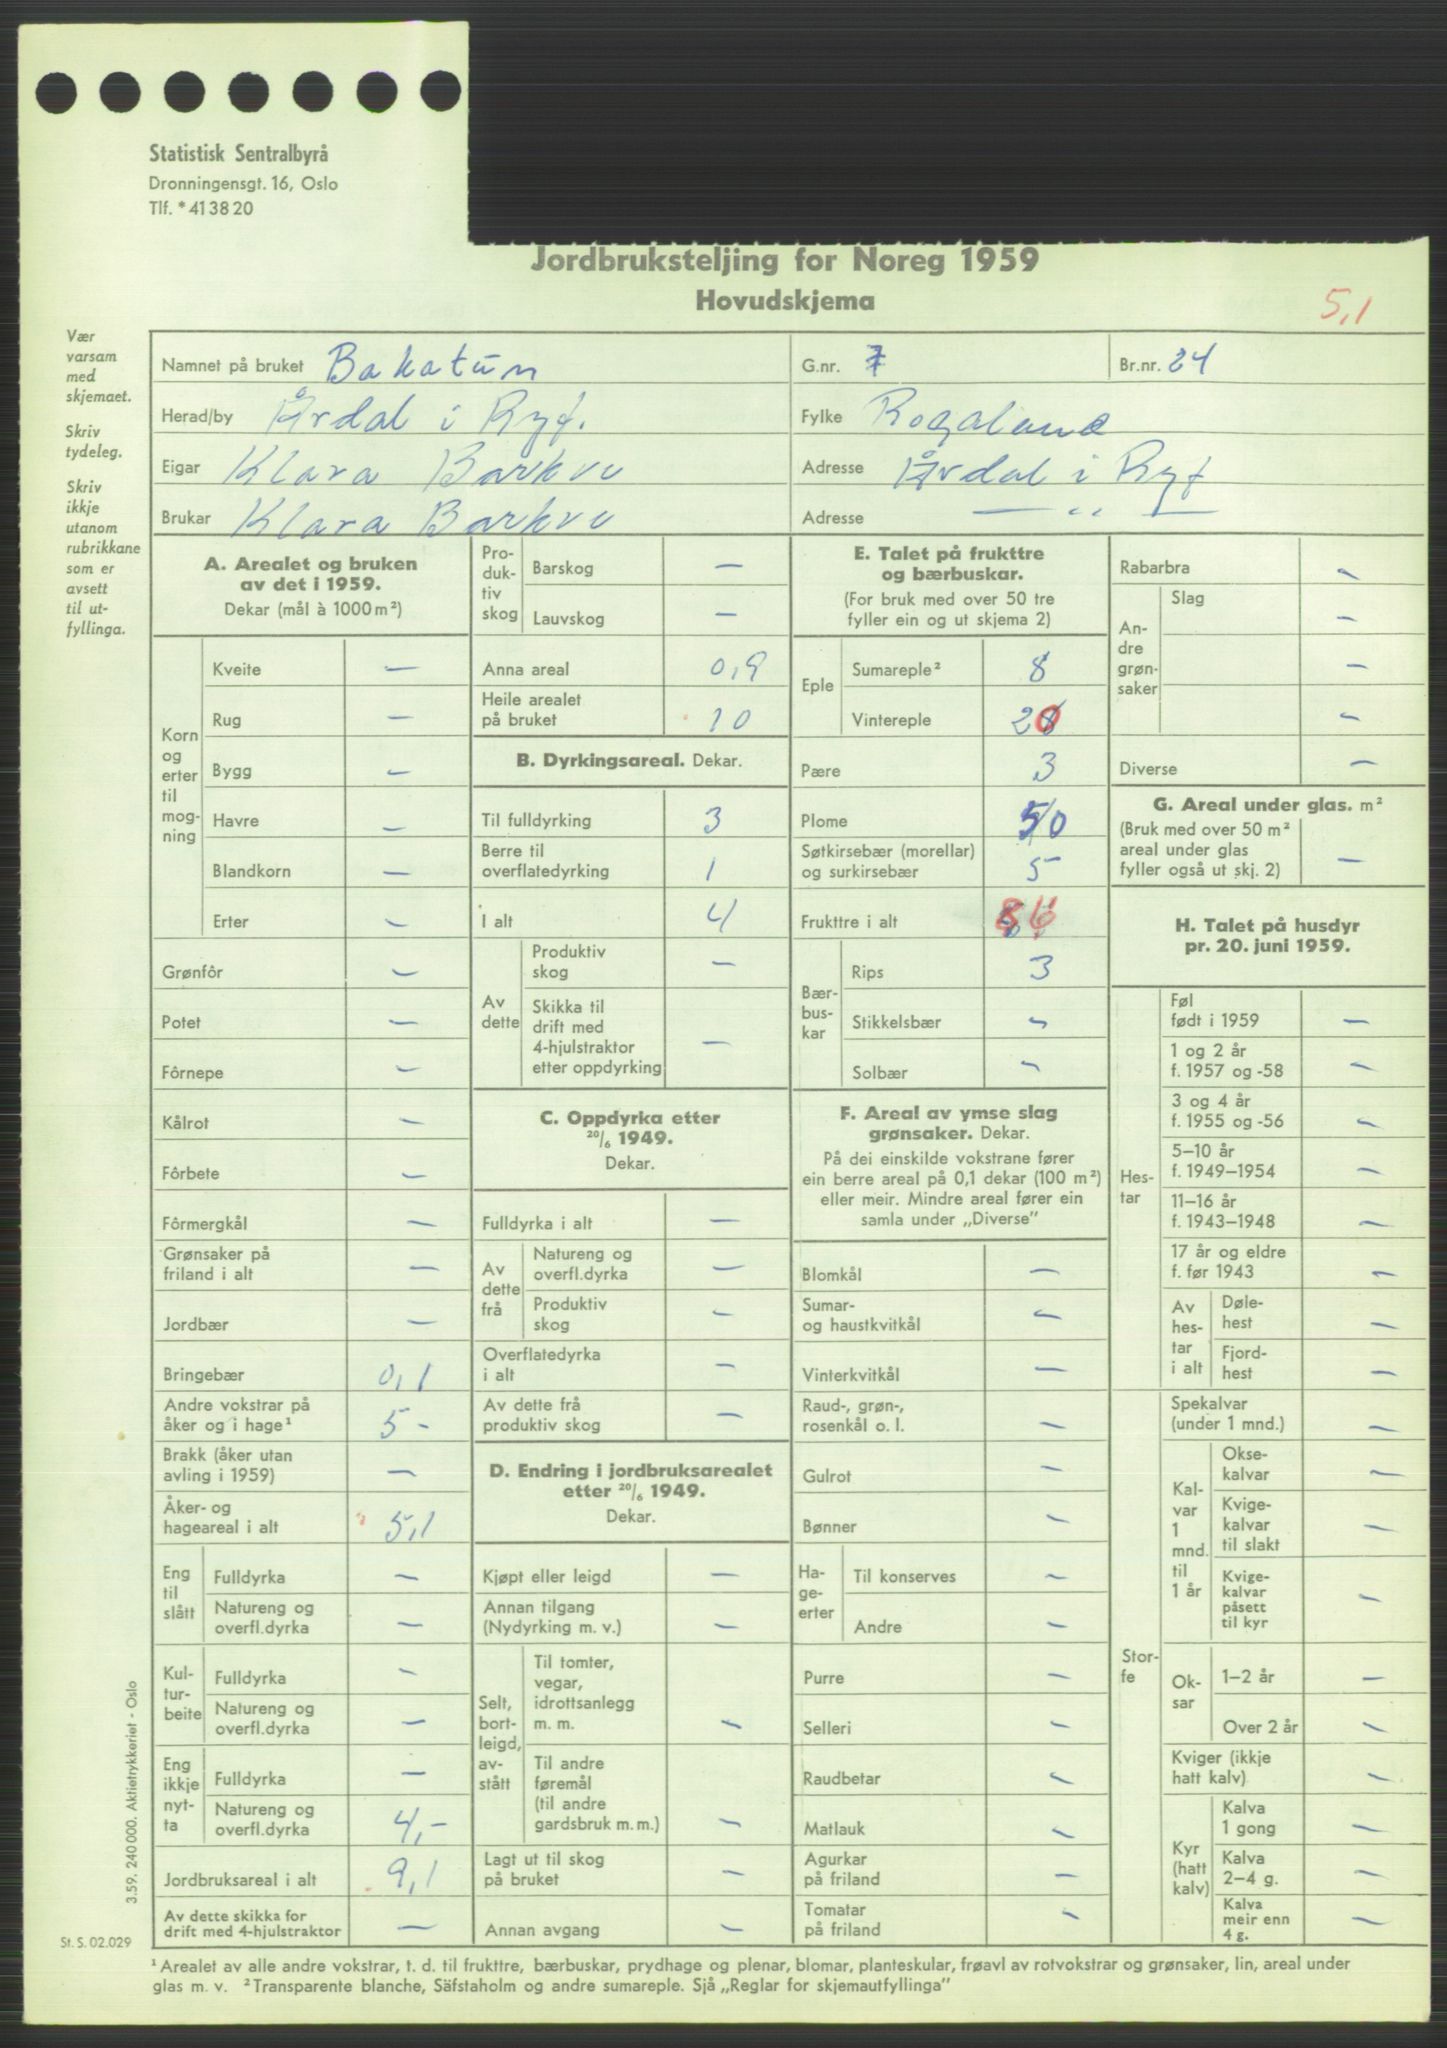 Statistisk Sentralbyrå
Dronningensgt. 16, Oslo
Tlf. * 41 38 20
Jordbruksteljing for Noreg 1959
Hovudskjema
5,1
Vær
varsam
med
skjemaet.
Skriv
tydeleg.
Skriv
ikkje
utanom
rubrikkane
som er
avsett
til ut-
fyllinga.
Namnet på bruket Bakatun G.nr. 7 Br.nr. 24
Herad/by Årdal i Ryf. Fylke Rogaland
Eigar Klara Barkve Adresse Årdal i Ryf
Brukar Klara Barkve Adresse — „ —
A. Arealet og bruken
av det i 1959.
Dekar (mål à 1000 m²)
Korn
og
erter
til
mog-
ning
Kveite —
Rug —
Bygg —
Havre —
Blandkorn —
Erter —
Grønfôr —
Potet —
Fôrnepe —
Kålrot —
Fôrbete —
Fôrmergkål —
Grønsaker på
friland i alt —
Jordbær —
Bringebær 0,1
Andre vokstrar på
åker og i hage¹ 5 -
Brakk (åker utan
avling i 1959) —
Åker- og
hageareal i alt 5,1
Eng
til
slått
Fulldyrka —
Natureng og
overfl.dyrka —
Kul-
tur-
beite
Fulldyrka —
Natureng og
overfl.dyrka —
Eng
ikkje
nyt-
ta
Fulldyrka —
Natureng og
overfl.dyrka 4,-
Jordbruksareal i alt 9,1
Av dette skikka for
drift med 4-hjulstraktor —
Pro-
duk-
tiv
skog
Barskog —
Lauvskog —
Anna areal 0,9
Heile arealet
på bruket 10
B. Dyrkingsareal. Dekar.
Til fulldyrking 3
Berre til
overflatedyrking 1
I alt 4
Av
dette
Produktiv
skog —
Skikka til
drift med
4-hjulstraktor
etter oppdyrking —
C. Oppdyrka etter
20/6 1949.
Dekar.
Fulldyrka i alt —
Av
dette
frå
Natureng og
overfl.dyrka —
Produktiv
skog —
Overflatedyrka
i alt —
Av dette frå
produktiv skog —
D. Endring i jordbruksarealet
etter 20/6 1949.
Dekar.
Kjøpt eller leigd —
Annan tilgang
(Nydyrking m. v.) —
Selt,
bort-
leigd,
av-
stått
Til tomter,
vegar,
idrottsanlegg
m. m. —
Til andre
føremål
(til andre
gardsbruk m. m.) —
Lagt ut til skog
på bruket —
Annan avgang —
E. Talet på frukttre
og bærbuskar.
(For bruk med over 50 tre
fyller ein og ut skjema 2)
Eple
Sumareple² 8
Vintereple 20
Pære 3
Plome 50
Søtkirsebær (morellar)
og surkirsebær 5
Frukttre i alt 86
Bær-
bus-
kar
Rips 3
Stikkelsbær —
Solbær —
F. Areal av ymse slag
grønsaker. Dekar.
På dei einskilde vokstrane fører
ein berre areal på 0,1 dekar (100 m²)
eller meir. Mindre areal fører ein
samla under „Diverse”
Blomkål —
Sumar-
og haustkvitkål —
Vinterkvitkål —
Raud-, grøn-,
rosenkål o. l. —
Gulrot —
Bønner —
Ha-
ge-
erter
Til konserves —
Andre —
Purre —
Selleri —
Raudbetar —
Matlauk —
Agurkar
på friland —
Tomatar
på friland —
Rabarbra —
An-
dre
grøn-
saker
Slag
—
—
—
Diverse —
G. Areal under glas. m²
(Bruk med over 50 m²
areal under glas
fyller også ut skj. 2) —
H. Talet på husdyr
pr. 20. juni 1959.
Hes-
tar
Føl
født i 1959 —
1 og 2 år
f. 1957 og -58 —
3 og 4 år
f. 1955 og -56 —
5–10 år
f. 1949–1954 —
11–16 år
f. 1943–1948 —
17 år og eldre
f. før 1943 —
Av
hes-
tar
i alt
Døle-
hest —
Fjord-
hest —
Stor-
fe
Spekalvar
(under 1 mnd.) —
Kal-
var
1
mnd.
til
1 år
Okse-
kalvar —
Kvige-
kalvar
til slakt —
Kvige-
kalvar
påsett
til kyr —
Ok-
sar
1–2 år —
Over 2 år —
Kviger (ikkje
hatt kalv) —
Kyr
(hatt
kalv)
Kalva
1 gong —
Kalva
2–4 g. —
Kalva
meir enn
4 g. —
3.59. 240 000. Aktietrykkeriet - Oslo
St. S. 02.029
¹ Arealet av alle andre vokstrar, t. d. til frukttre, bærbuskar, prydhage og plenar, blomar, planteskular, frøavl av rotvokstrar og grønsaker, lin, areal under
glas m. v. ² Transparente blanche, Säfstaholm og andre sumareple. Sjå „Reglar for skjemautfyllinga”